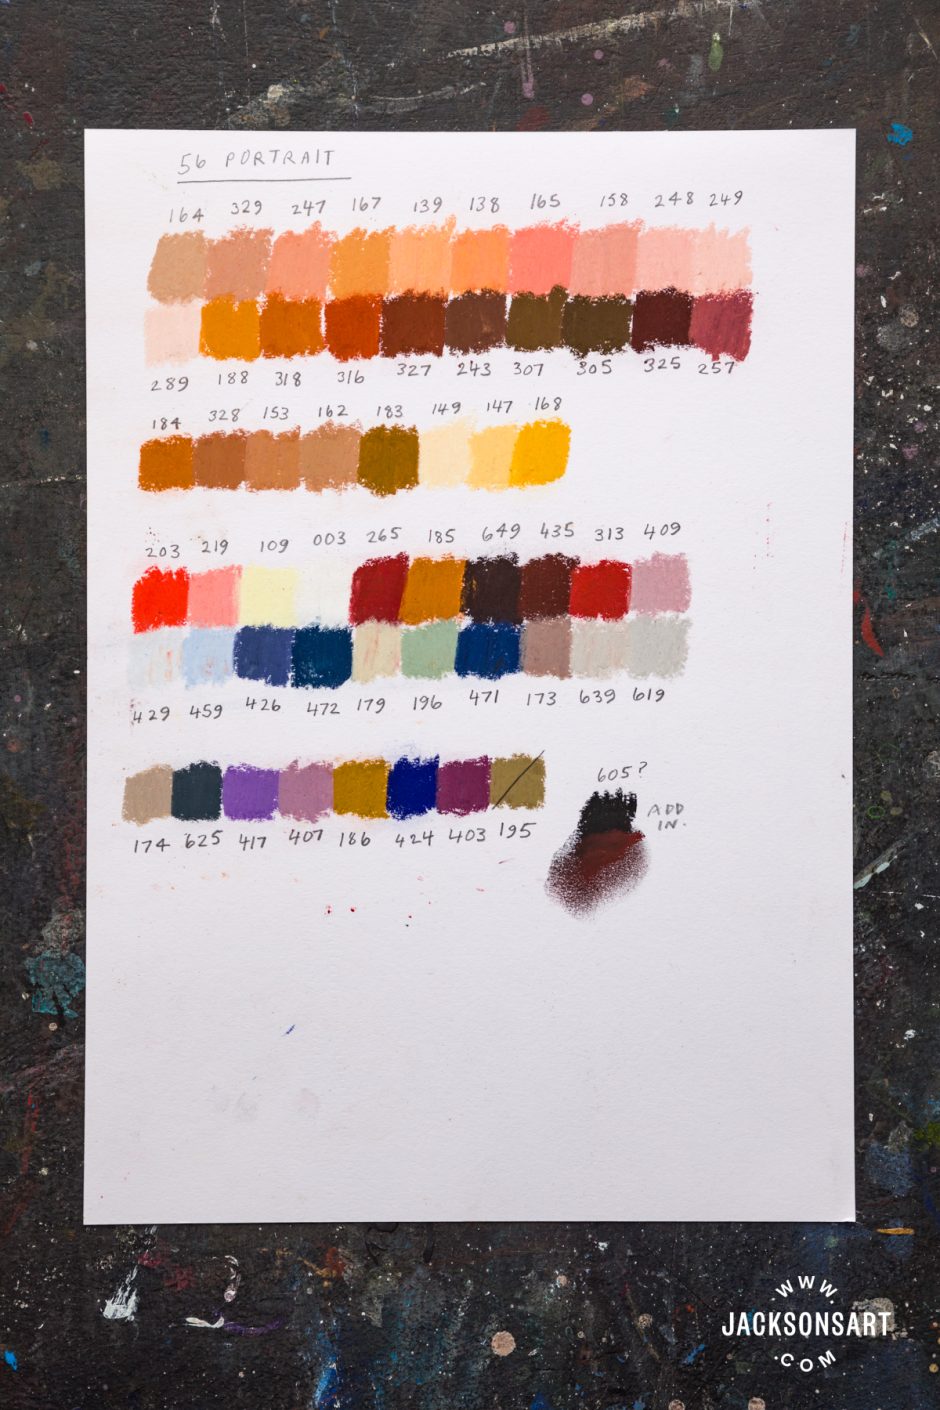 56 PORTRAIT
164 329 247 167 139 138 165 158 248 249
289 188 318 316 327 243 307 305 325 257
184 328 153 162 183 149 147 168
203 219 109 003 265 185 649 435 313 409
429 459 426 472 179 196 471 173 639 619
605?
ADD
IN.
174 625 417 407 186 424 403 195
WWW.
JACKSONSART
.COM